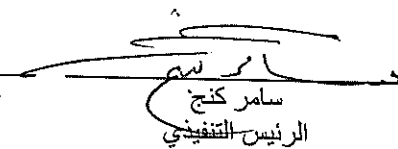 سامر كنج
الرئيس التنفيذي